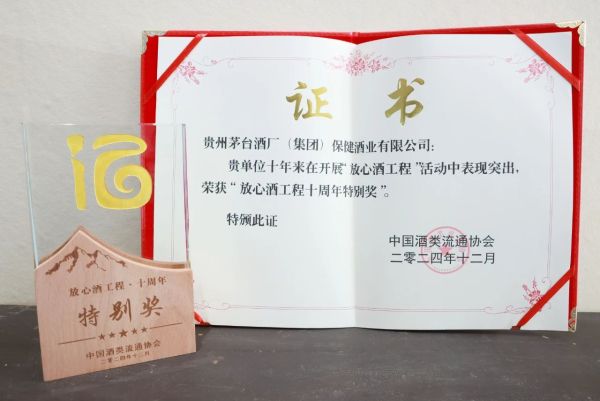 证书
贵州茅台酒厂（集团）保健酒业有限公司：
贵单位十年来在开展“放心酒工程”活动中表现突出，
荣获“放心酒工程十周年特别奖”。
特颁此证
中国酒类流通协会
二零二四年十二月
放心酒工程·十周年
特别奖
中国酒类流通协会
二零二四年十二月